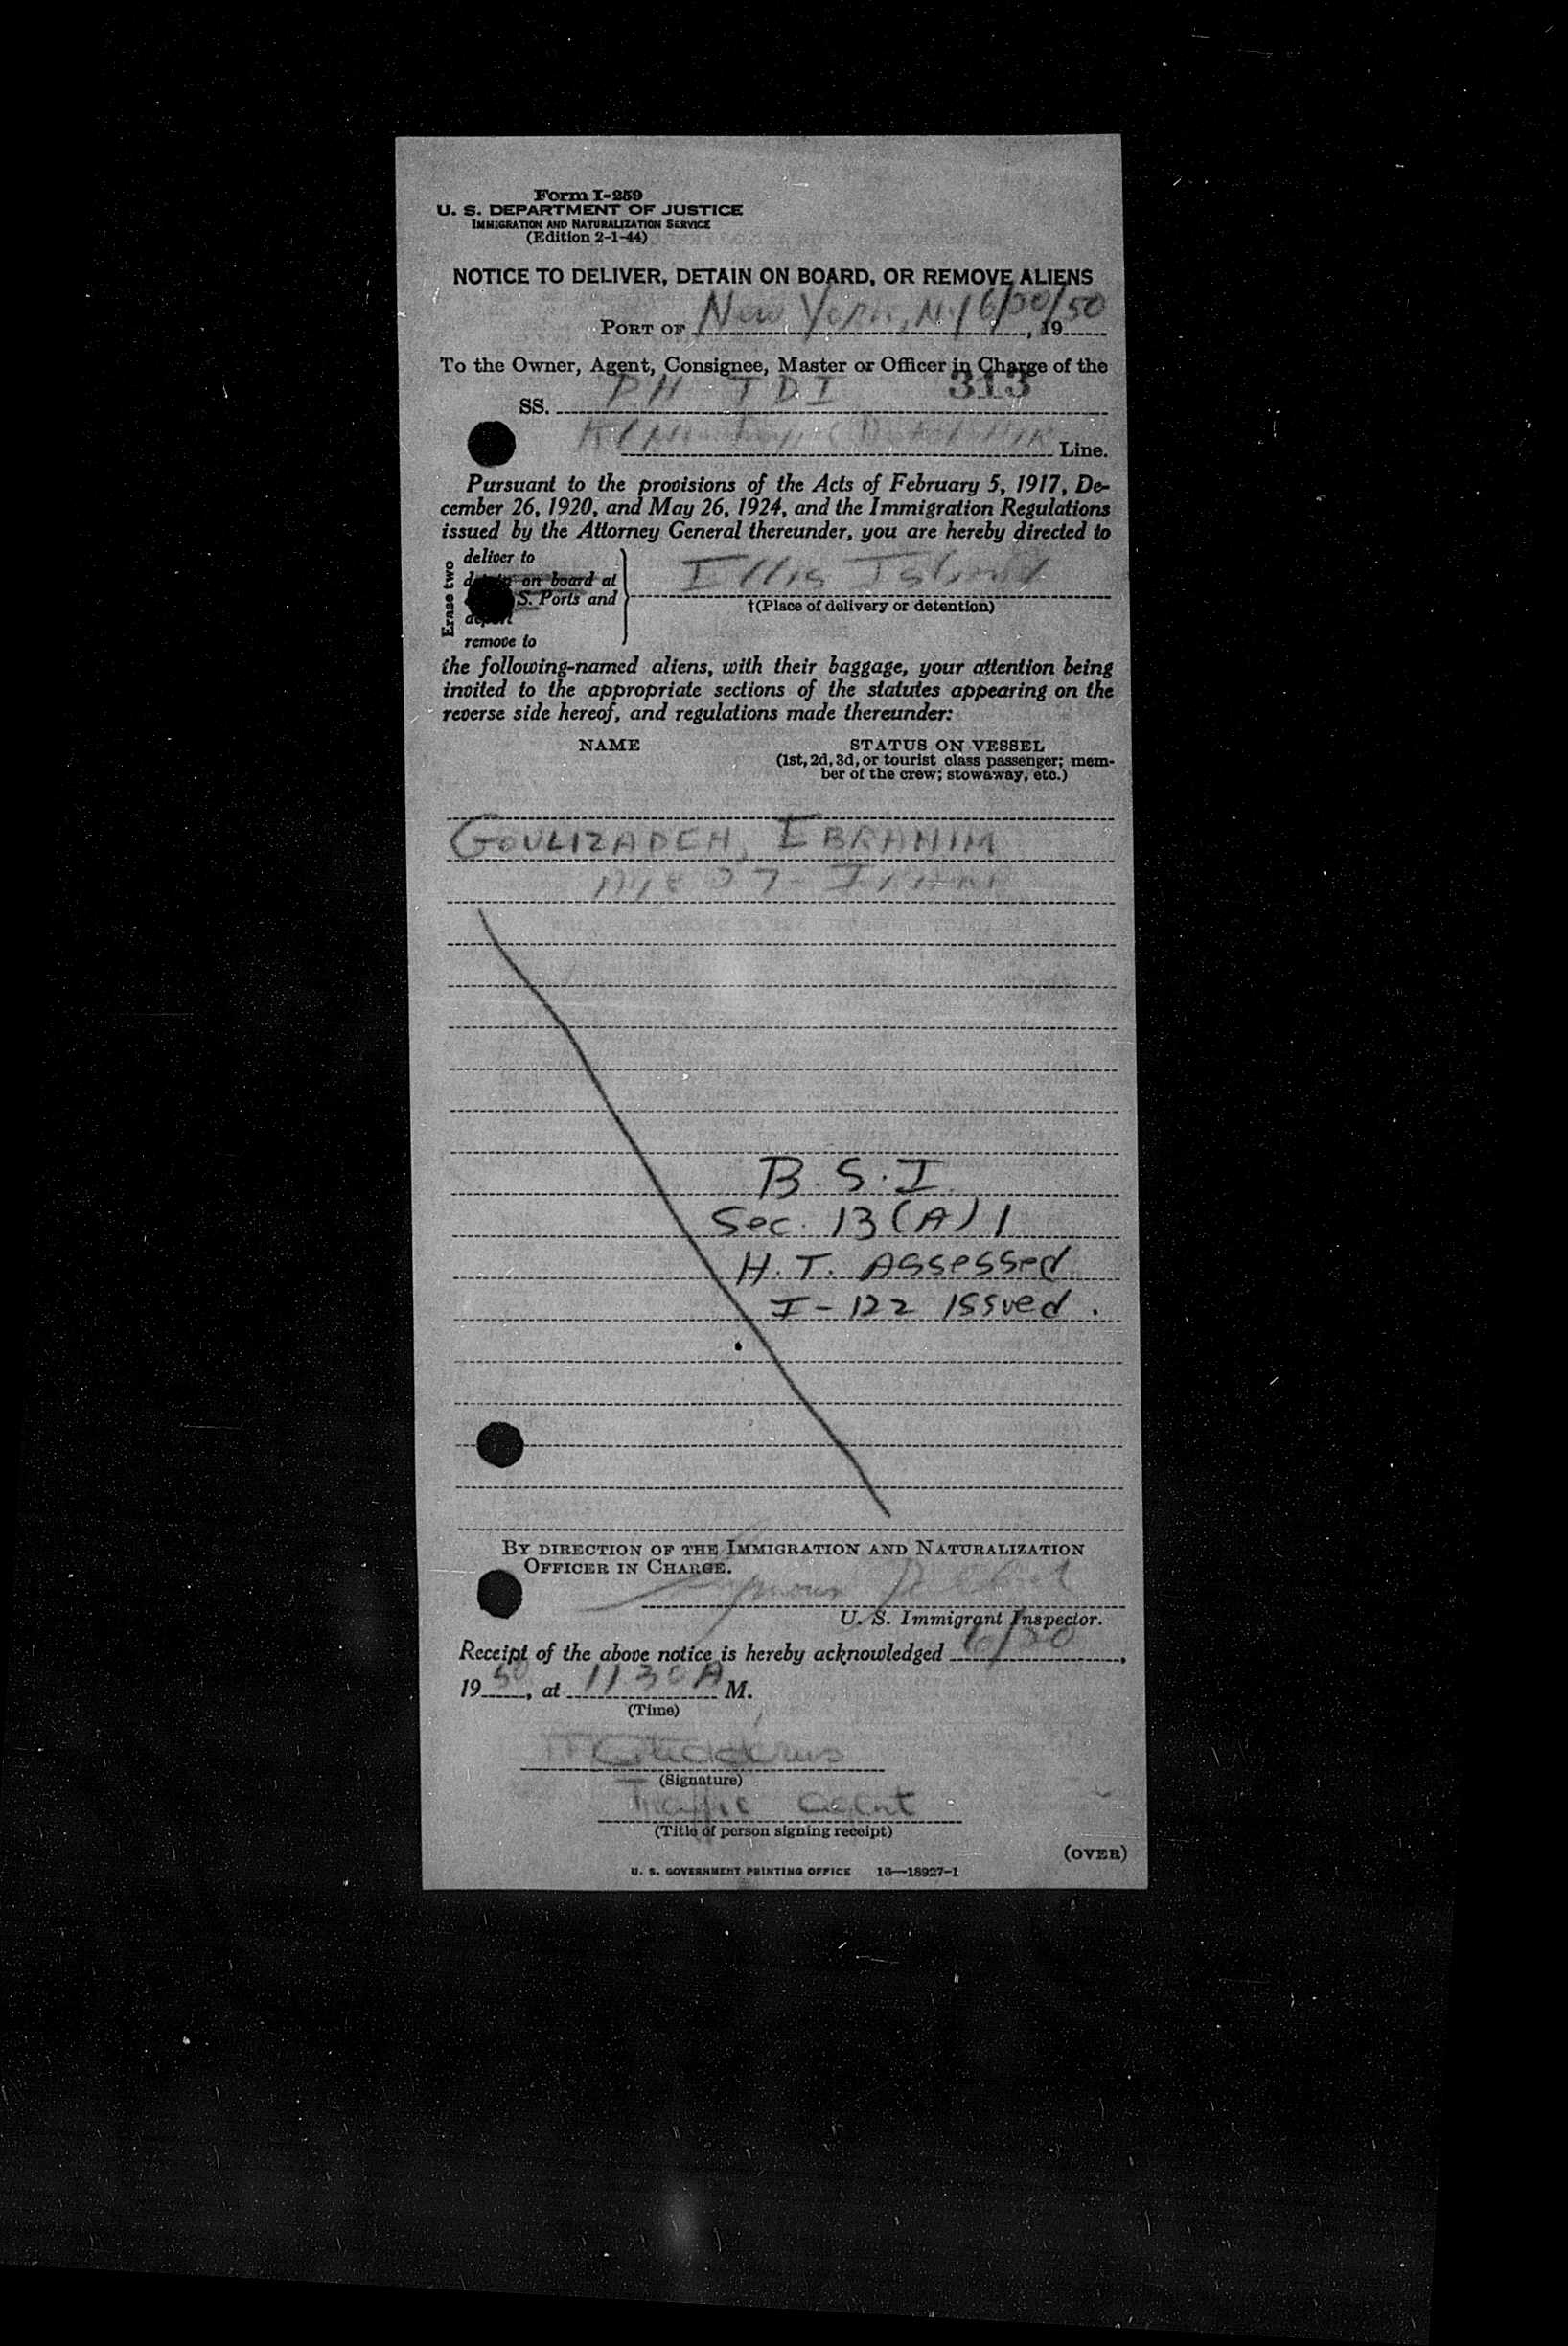 Form I-259
U. S. DEPARTMENT OF JUSTICE
IMMIGRATION AND NATURALIZATION SERVICE
(Edition 2-1-44)
NOTICE TO DELIVER, DETAIN ON BOARD, OR REMOVE ALIENS
PORT OF New York, N.Y 6/30/50, 19
To the Owner, Agent, Consignee, Master or Officer in Charge of the
313
SS. PH TDI
Line.
Pursuant to the provisions of the Acts of February 5, 1917, De-
cember 26, 1920, and May 26, 1924, and the Immigration Regulations
issued by the Attorney General thereunder, you are hereby directed to
Erase two
deliver to
on board at
S. Ports and
deport
remove to
Ellis Island
†(Place of delivery or detention)
the following-named aliens, with their baggage, your attention being
invited to the appropriate sections of the statutes appearing on the
reverse side hereof, and regulations made thereunder:
NAME
STATUS ON VESSEL
(1st, 2d, 3d, or tourist class passenger; mem-
ber of the crew; stowaway, etc.)
GOULIZADEH, EBRAHIM
Age 27 -
B.S.I.
Sec. 13(A)1
H.T. Assessed
I-122 Issued.
BY DIRECTION OF THE IMMIGRATION AND NATURALIZATION
OFFICER IN CHARGE.
Seymour
U. S. Immigrant Inspector.
Receipt of the above notice is hereby acknowledged 6/30,
19 50, at 1130 A M.
(Time)
(Signature)
Traffic agent
(Title of person signing receipt)
(OVER)
U. S. GOVERNMENT PRINTING OFFICE 16—18927-1